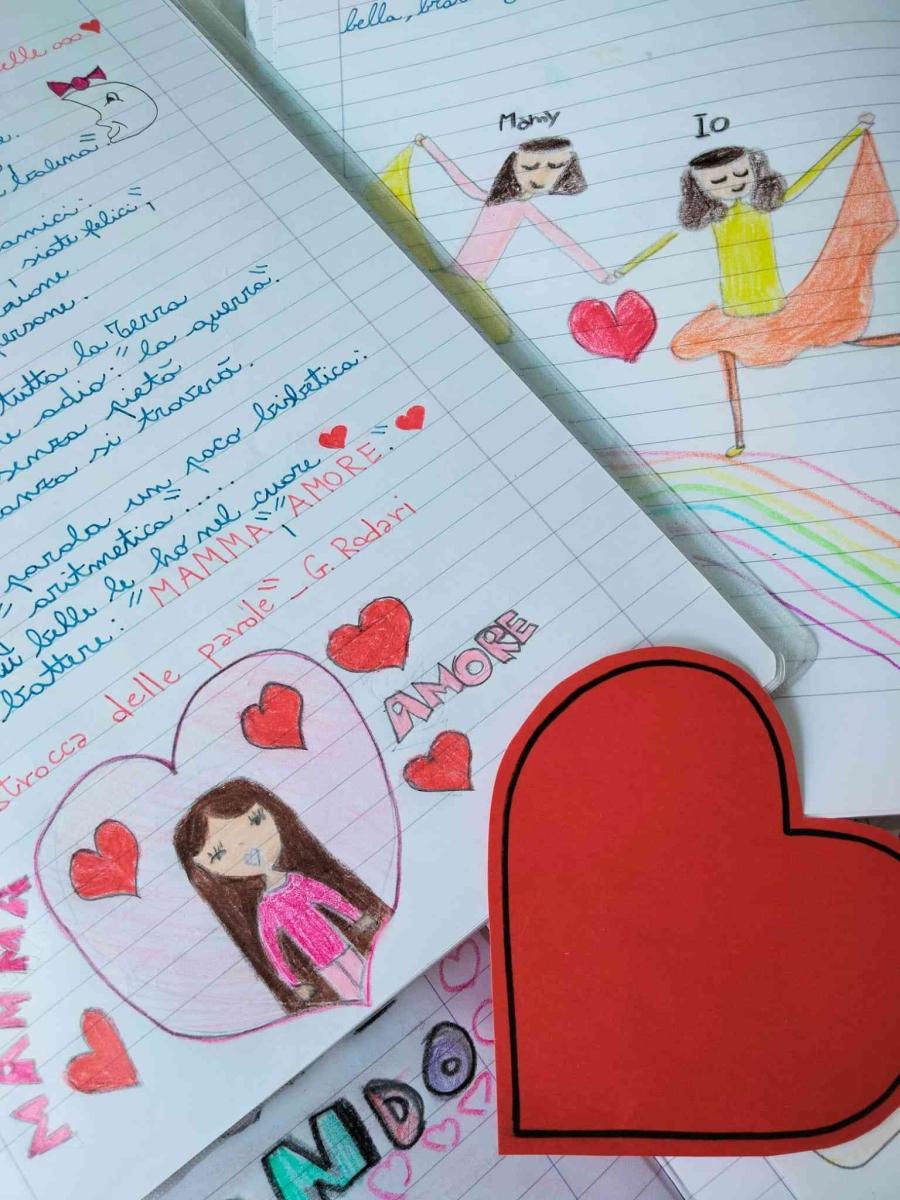 elle ooo
"
balena".
amici:
, siate felici",
persone.
tutta la Terra
e adio:" la guerra".
senza pietà
anza si troverà.
parola un poco bisbetica:
" aritmetica".....
belle le ho nel cuore
battere: "MAMMA", "AMORE".
delle parole" _ G. Rodari
AMORE
MAMMA
NDO
bella,
Mamy
Io